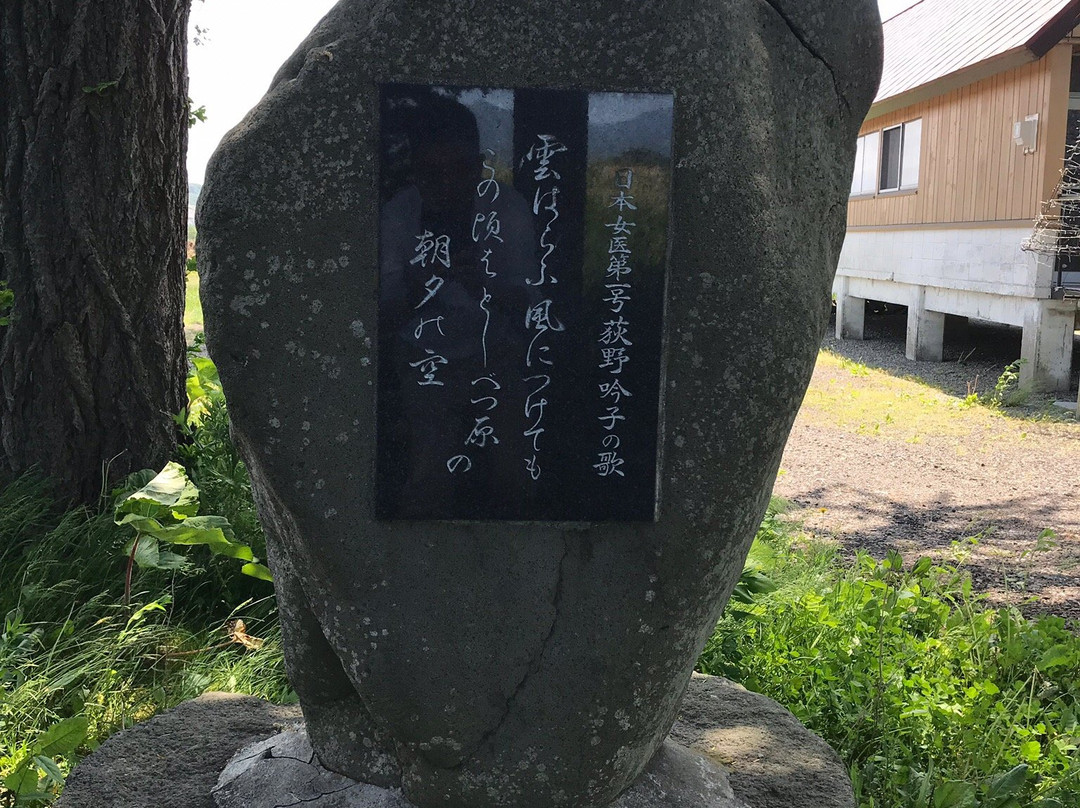 日本女医第一号荻野吟子の歌
雲はらふ風につけても
この頃はとしべつ原の
朝夕の空